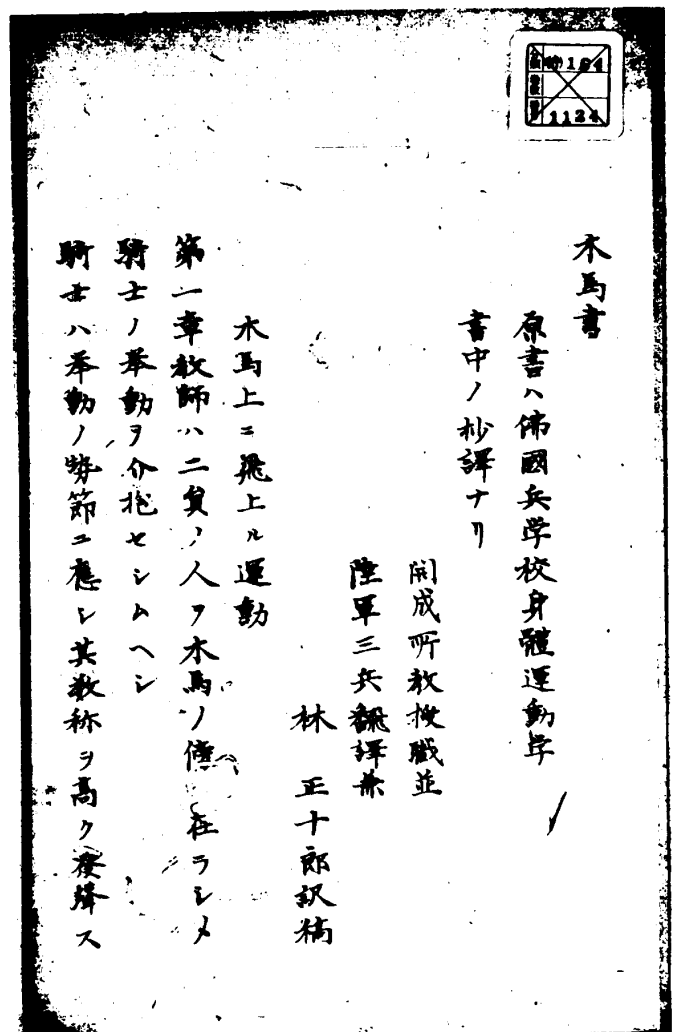 特164
1124
木馬書
原書ハ佛國兵学校身體運動学
書中ノ抄譯ナリ
開成所教授職並
陸軍三兵飜譯兼
林 正十郎訳稿
木馬上ニ飛上ル運動
第一章教師ハ二員ノ人ヲ木馬ノ傍 在ラシメ
騎士ノ挙動ヲ介抱セシムヘシ
騎士ハ挙動ノ勢節ニ應シ其数称ヲ高ク發聲ス